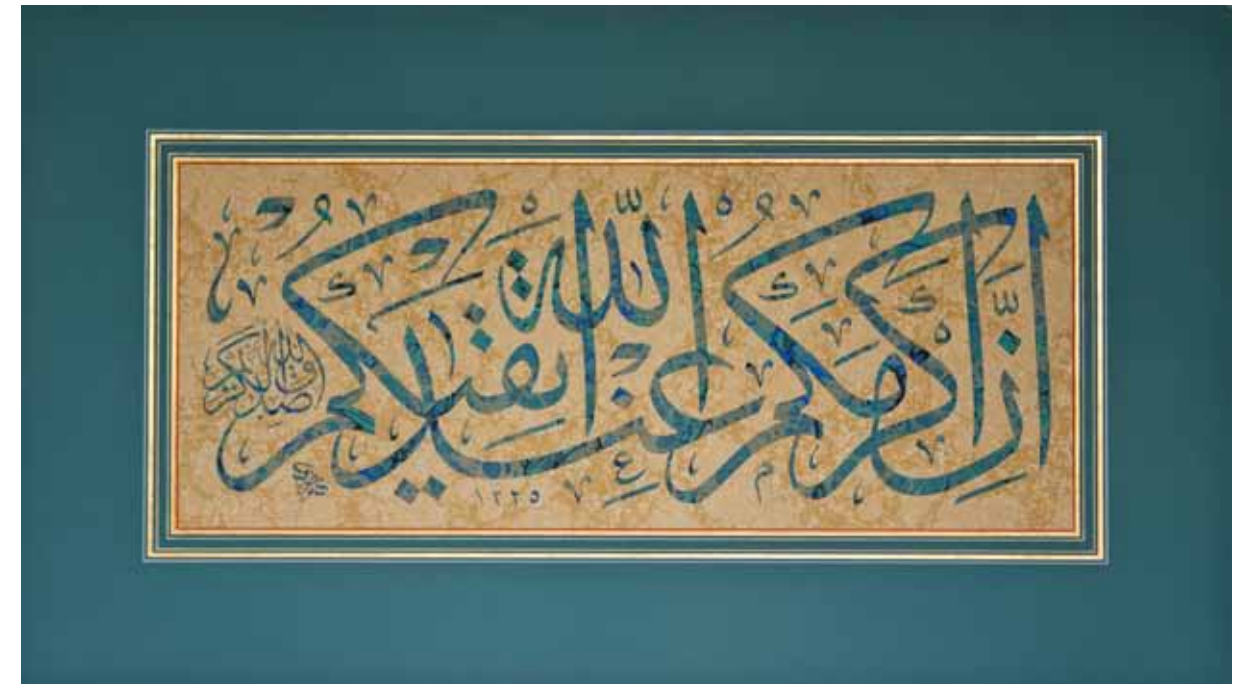 إِنَّ أَكْرَمَكُمْ عِنْدَ اللّٰهِ أَتْقٰيكُمْ
صدق الله الكريم
١٢٢٥